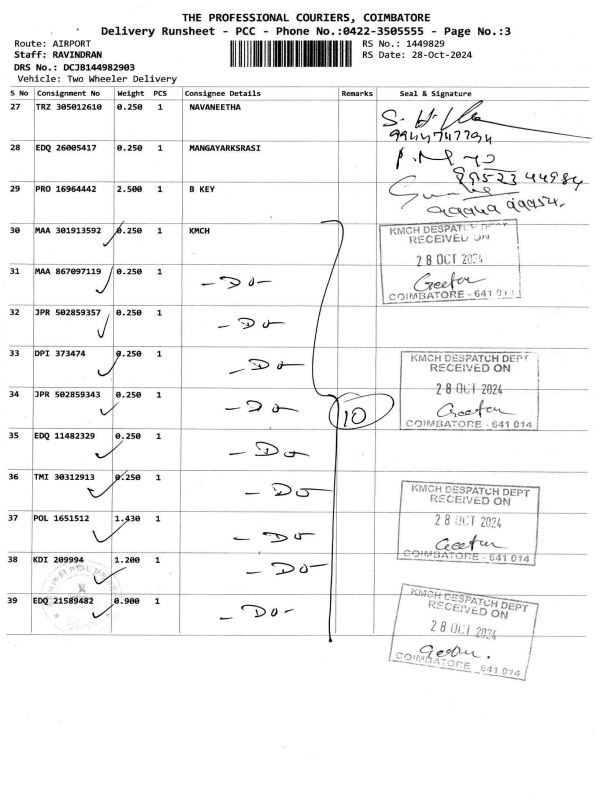 THE PROFESSIONAL COURIERS, COIMBATORE
Delivery Runsheet - PCC - Phone No.:0422-3505555 - Page No.:3
Route: AIRPORT RS No.: 1449829
Staff: RAVINDRAN RS Date: 28-Oct-2024
DRS No.: DCJB144982903
Vehicle: Two Wheeler Delivery
S No Consignment No Weight PCS Consignee Details Remarks Seal & Signature
27 TRZ 305012610 0.250 1 NAVANEETHA
9944747794
28 EDQ 26005417 0.250 1 MANGAYARKSRASI
29 PRO 16964442 2.500 1 B KEY
30 MAA 301913592 0.250 1 KMCH
KMCH DESPATCH DEPT
RECEIVED ON
28 OCT 2024
Geetha
COIMBATORE - 641 014
31 MAA 867097119 0.250 1 - Do -
32 JPR 502859357 0.250 1 - Do -
33 DPI 373474 0.250 1 - Do -
KMCH DESPATCH DEPT
RECEIVED ON
28 OCT 2024
Geetha
COIMBATORE - 641 014
34 JPR 502859343 0.250 1 - Do - 10
35 EDQ 11482329 0.250 1 - Do -
36 TMI 30312913 0.250 1 - Do -
KMCH DESPATCH DEPT
RECEIVED ON
28 OCT 2024
Geetha
COIMBATORE - 641 014
37 POL 1651512 1.430 1 - Do -
38 KDI 209994 1.200 1 - Do -
39 EDQ 21589482 0.900 1 - Do -
KMCH DESPATCH DEPT
RECEIVED ON
28 OCT 2024
Geetha.
COIMBATORE 641 014